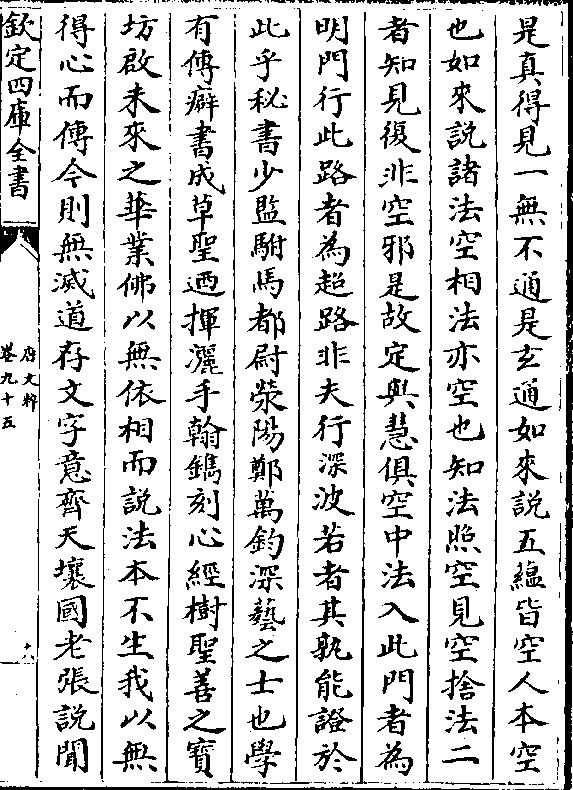 是真得見一無不通是玄通如來說五緼皆空人本空
也如來說諸法空相法亦空也知法照空見空捨法二
者知見復非空邪是故定與慧俱空中法入此門者為
明門行此路者為超路非夫行深波若者其孰能證於
此乎秘書少監駙馬都尉滎陽鄭萬鈞深藝之士也學
有傳癖書成草聖迺揮灑手翰鐫刻心經樹聖善之寶
坊啟未來之華業佛以無依相而說法本不生我以無
得心而傳今則無滅道存文字意齊天壤國老張說聞
欽定四庫全書
卷九十五